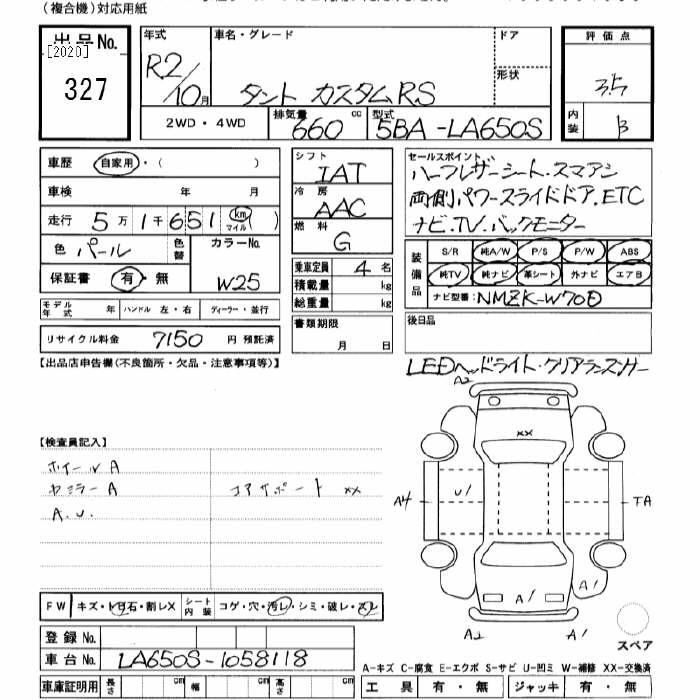 (複合機)対応用紙
出品No. 年式 車名・グレード ドア 評価点
[2020] R2/10月 タント カスタムRS 形状 3.5
327
2WD・4WD 排気量 660 cc 型式 5BA-LA650S 内装 B
車歴 自家用・( ) シフト IAT セールスポイント
ハーフレザーシート.スマアシ
車検 年 月 冷房 AAC 両側パワースライドドア.ETC
走行 5万1千651 km マイル 燃料 G ナビ.TV.バックモニター
色 パール 色替 カラーNo. W25
保証書 有・無 乗車定員 4名
積載量 kg
総重量 kg
装備品 S/R 純A/W P/S P/W ABS
純TV 純ナビ 革シート 外ナビ エアB
ナビ型番: NMZK-W70D
モデル年式 年 ハンドル 左・右 ディーラー・並行
書類期限 月 日
後日品
リサイクル料金 7150 円 預託済
【出品店申告欄(不良箇所・欠品・注意事項等)】
LEDヘッドライト・クリアランスソナー
【検査員記入】
ホイールA
ヤミラーA コアサポート xx
A.U.
A2
xx
A4 U1 TA
A1 A1
A2 A1
スペア
FW キズ・トビ石・割レX シート内装 コゲ・穴・汚レ・シミ・破レ・スレ
登録No.
車台No. LA650S-1058118
A-キズ C-腐食 E-エクボ S-サビ U-凹ミ W-補修 XX-交換済
車庫証明用 長さ cm 幅 cm 高さ cm 工具 有・無 ジャッキ 有・無